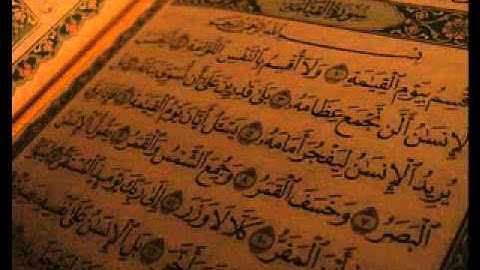 سُورَةُ القِيَامَةِ
بِسْمِ اللَّهِ الرَّحْمَٰنِ الرَّحِيمِ
قْسِمُ بِيَوْمِ ٱلْقِيَٰمَةِ ۝ وَلَآ أُقْسِمُ بِٱلنَّفْسِ ٱللَّوَّامَةِ ۝ أَيَحْسَبُ
ٱلْإِنسَٰنُ أَلَّن نَّجْمَعَ عِظَامَهُۥ ۝ بَلَىٰ قَٰدِرِينَ عَلَىٰٓ أَن نُّسَوِّىَ بَنَانَهُۥ
يُرِيدُ ٱلْإِنسَٰنُ لِيَفْجُرَ أَمَامَهُۥ ۝ يَسْـَٔلُ أَيَّانَ يَوْمُ ٱلْقِيَٰمَةِ ۝ فَإِذَا بَرِقَ
ٱلْبَصَرُ ۝ وَخَسَفَ ٱلْقَمَرُ ۝ وَجُمِعَ ٱلشَّمْسُ وَٱلْقَمَرُ ۝ يَقُولُ ٱلْإِنسَٰنُ
أَيْنَ ٱلْمَفَرُّ ۝ كَلَّا لَا وَزَرَ ۝ إِلَىٰ رَبِّكَ يَوْمَئِذٍ ٱلْمُسْتَقَرُّ
وَأَخَّرَ ۝ بَلِ ٱلْإِنسَٰنُ عَلَىٰ نَفْسِهِۦ